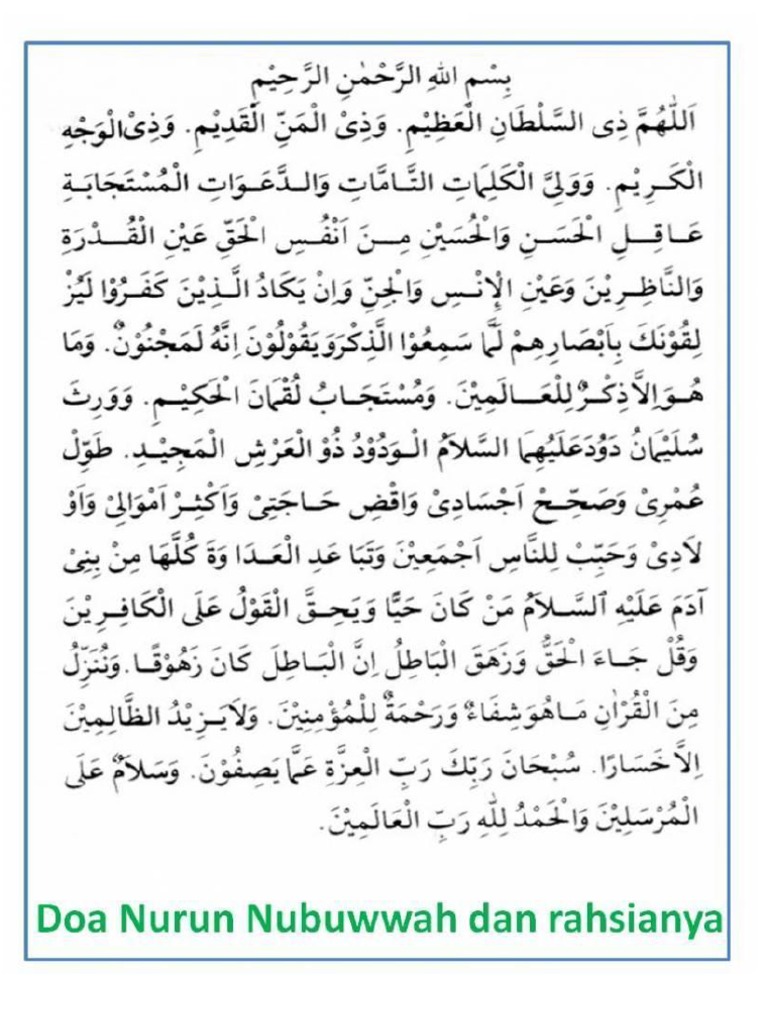 بِسْمِ اللهِ الرَّحْمٰنِ الرَّحِيْمِ
اَللّٰهُمَّ ذِى السَّلْطَانِ الْعَظِيْمِ. وَذِىْ الْمَنِّ الْقَدِيْمِ. وَذِىْ الْوَجْهِ
الْكَرِيْمِ. وَوَلِيَّ الْكَلِمَاتِ التَّامَّاتِ وَالدَّعَوَاتِ الْمُسْتَجَابَةِ
عَاقِلِ الْحَسَنِ وَالْحُسَيْنِ مِنَ اَنْفُسِ الْحَقِّ عَيْنِ الْقُدْرَةِ
وَالنَّاظِرِيْنَ وَعَيْنِ الْاِنْسِ وَالْجِنِّ وَاِنْ يَكَادُ الَّذِيْنَ كَفَرُوْا لَيُزْ
لِقُوْنَكَ بِاَبْصَارِهِمْ لَمَّا سَمِعُوْا الذِّكْرَ وَيَقُوْلُوْنَ اِنَّهُ لَمَجْنُوْنٌ. وَمَا
هُوَ اِلاَّ ذِكْرٌ لِلْعَالَمِيْنَ. وَمُسْتَجَابُ لُقْمَانَ الْحَكِيْمِ. وَوَرِثَ
سُلَيْمَانُ دَوُدَ عَلَيْهِمَا السَّلاَمُ الْوَدُوْدُ ذُو الْعَرْشِ الْمَجِيْدِ. طَوِّلْ
عُمْرِىْ وَصَحِّحْ اَجْسَادِىْ وَاقْضِ حَاجَتِىْ وَاَكْثِرْ اَمْوَالِىْ وَاَوْ
لَادِىْ وَحَبِّبْ لِلنَّاسِ اَجْمَعِيْنَ وَتَبَا عَدِ الْعَدَا وَةَ كُلَّهَا مِنْ بَنِىْ
آدَمَ عَلَيْهِ السَّلاَمُ مَنْ كَانَ حَيًّا وَيَحِقَّ الْقَوْلُ عَلَى الْكَافِرِيْنَ
وَقُلْ جَاءَ الْحَقُّ وَزَهَقَ الْبَاطِلُ اِنَّ الْبَاطِلَ كَانَ زَهُوْقًا. وَنُنَزِّلُ
مِنَ الْقُرْاٰنِ مَاهُوَ شِفَاءٌ وَرَحْمَةٌ لِلْمُؤْمِنِيْنَ. وَلاَيَزِيْدُ الظَّالِمِيْنَ
اِلاَّ خَسَارًا. سُبْحَانَ رَبِّكَ رَبِّ الْعِزَّةِ عَمَّا يَصِفُوْنَ. وَسَلاَمٌ عَلَى
الْمُرْسَلِيْنَ وَالْحَمْدُ لِلّٰهِ رَبِّ الْعَالَمِيْنَ.
Doa Nurun Nubuwwah dan rahsianya